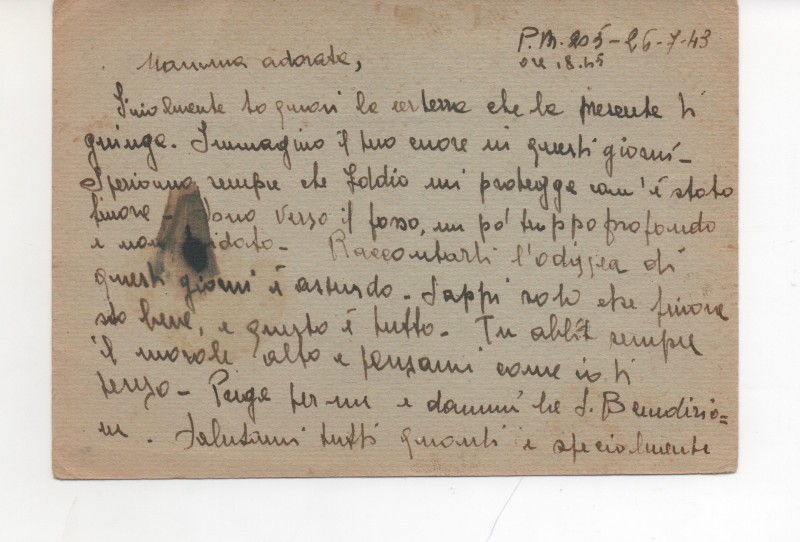 P.M. 205 - 26-7-43
ore 18.45
Mamma adorata,
Finalmente ho quasi la certezza che la presente ti
giunga. Immagino il tuo cuore in questi giorni -
Speriamo sempre che Iddio mi protegga com'è stato
finora - Sono verso il fosso, un po' troppo profondo
e non - Raccontarti l'odissea di
questi giorni è assurdo - Sappi solo che finora
sto bene, e questo è tutto - Tu abbi sempre
il morale alto e pensami come io ti
penso - Prega per me e dammi la S. Benedizio=
ne. Salutami tutti quanti e specialmente